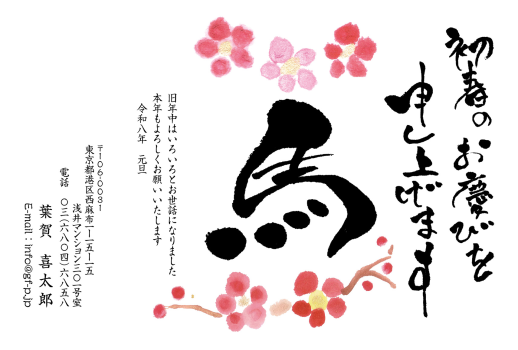 初春のお慶びを
申し上げます
馬
旧年中はいろいろとお世話になりました
本年もよろしくお願いいたします
令和八年　元旦
〒106-0031
東京都港区西麻布一ー一五ー一五
浅井マンション三〇一号室
電話　〇三(六八〇四)六八五八
葉賀　喜太郎
E-mail：info@gf-p.jp